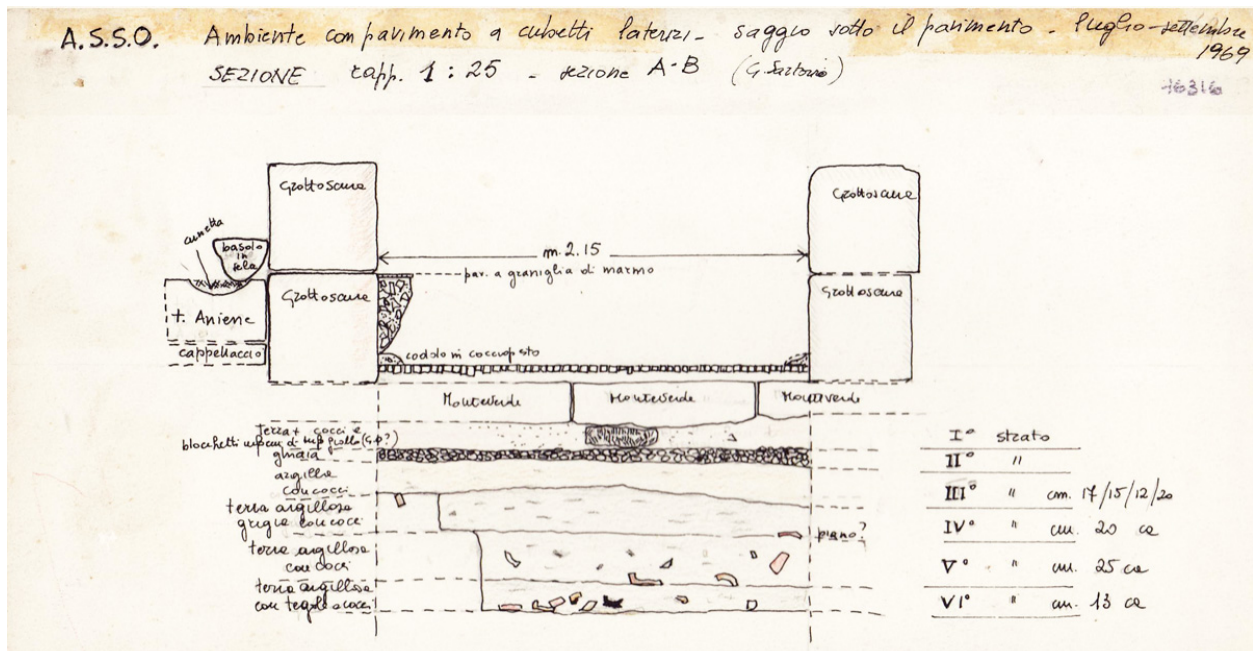 A.S.S.O. Ambiente con pavimento a cubetti laterizi - saggio sotto il pavimento - luglio-settembre
1969
SEZIONE rapp. 1:25 - sezione A-B (G. Sartorio)
Grottoscura
Grottoscura
cunetta
basolo
in
sela
m. 2.15
pav. a graniglia di marmo
Grottoscura
Grottoscura
t. Aniene
cappellaccio
cordolo in cocciopesto
Monteverde
Monteverde
Monteverde
terra + cocci e
blocchetti di tufo giallo (G.O?)
ghiaia
argilla
con cocci
terra argillosa
grigia con cocci
terra argillosa
con cocci
terra argillosa
con tegole e cocci
piano?
I° strato
II° "
III° " cm. 17/15/12/20
IV° " cm. 20 ca
V° " cm. 25 ca
VI° " cm. 13 ca